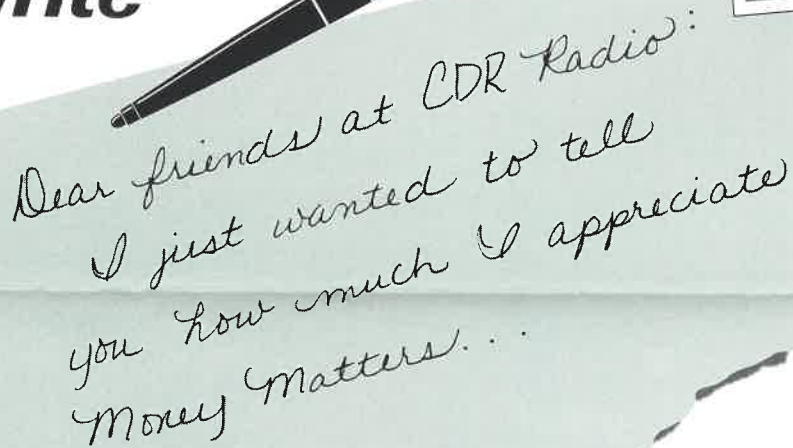 Dear friends at CDR Radio:
I just wanted to tell
you how much I appreciate
Money Matters...